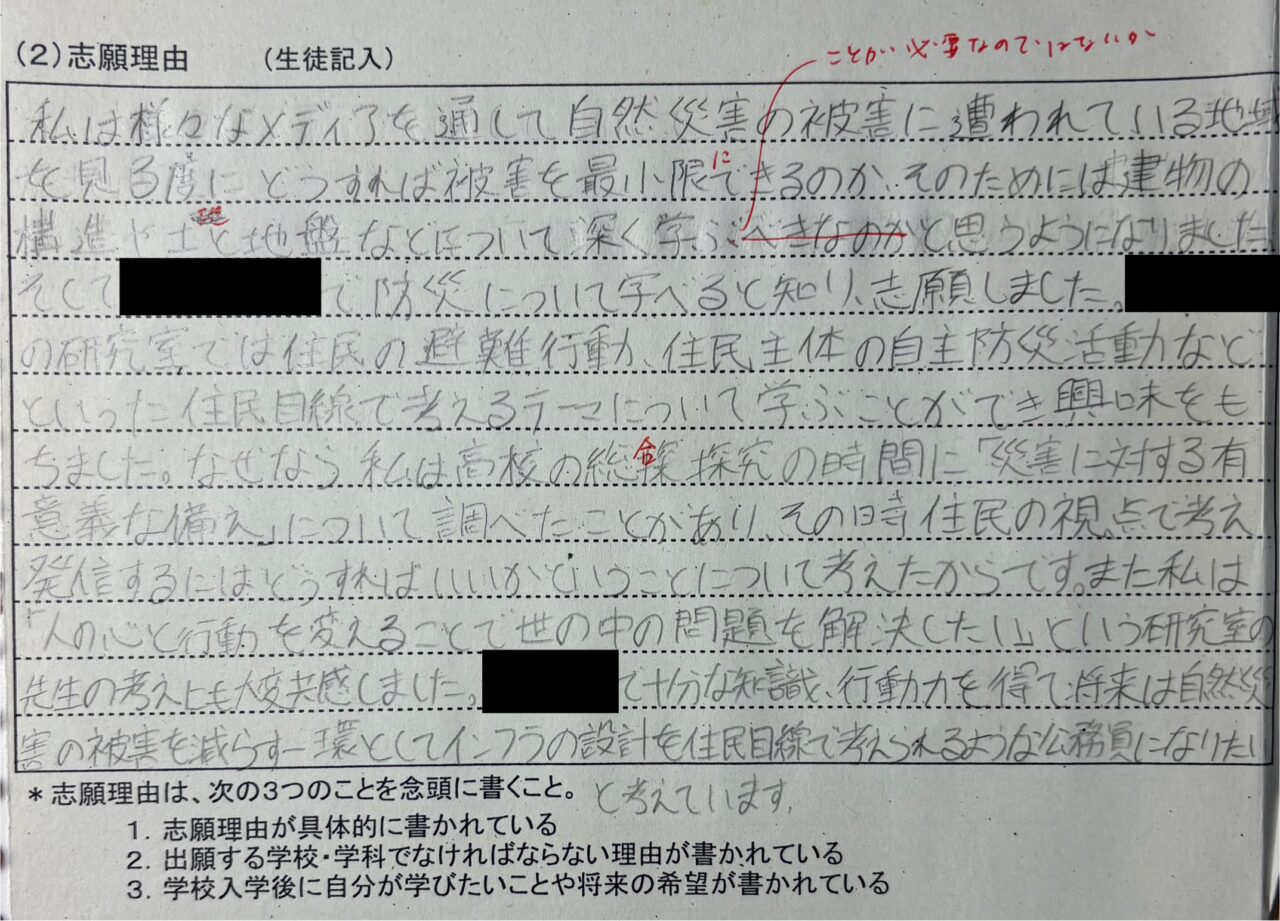 (2)志願理由 (生徒記入)
ことが必要なのではないか
私は様々なメディアを通して自然災害の被害に遭われている地域
を見る度にどうすれば被害を最小限にできるのか、そのためには建物の
構造や土と地盤などについて深く学ぶべきなのかと思うようになりました
そして で防災について学べると知り、志願しました。
の研究室では住民の避難行動、住民主体の自主防災活動など
といった住民目線で考えるテーマについて学ぶことができ興味をも
ちました。なぜなら私は高校の総合探究の時間に「災害に対する有
意義な備え」について調べたことがあり、その時住民の視点で考え
発信するにはどうすればいいかということについて考えたからです。また私は
「人の心と行動を変えることで世の中の問題を解決したい」という研究室の
先生の考えにも大変共感しました。 で十分な知識、行動力を得て将来は自然災
害の被害を減らす一環としてインフラの設計を住民目線で考えられるような公務員になりたい
と考えています。
*志願理由は、次の3つのことを念頭に書くこと。
1. 志願理由が具体的に書かれている
2. 出願する学校・学科でなければならない理由が書かれている
3. 学校入学後に自分が学びたいことや将来の希望が書かれている